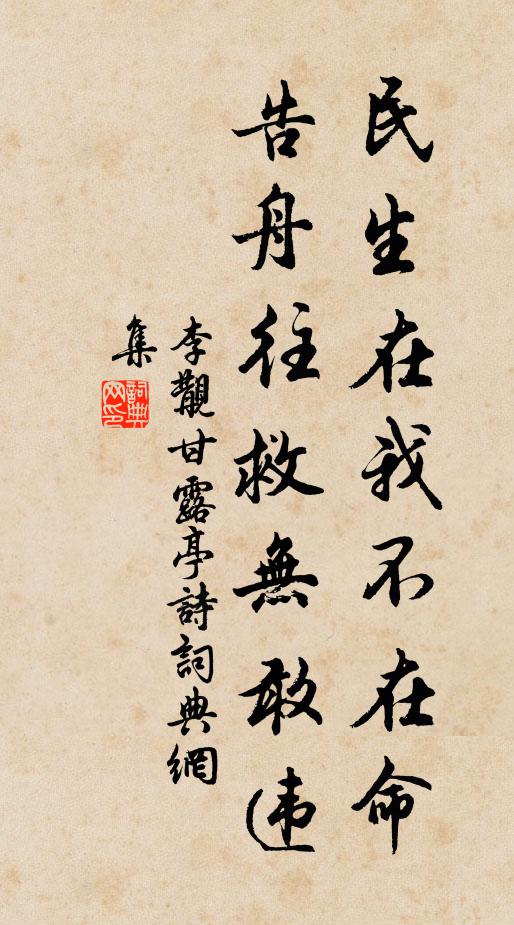 民生在我不在命
告舟往救無敢违
李觀甘露亭詩詞典網
集
詞典網印